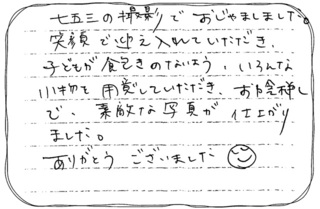 七五三の撮影でおじゃましました。
笑顔で迎え入れていただき、
子どもが飽きのないよう、いろんな
小物を用意していただき、お陰様
で、素敵な写真が仕上がり
ました。
ありがとうございました